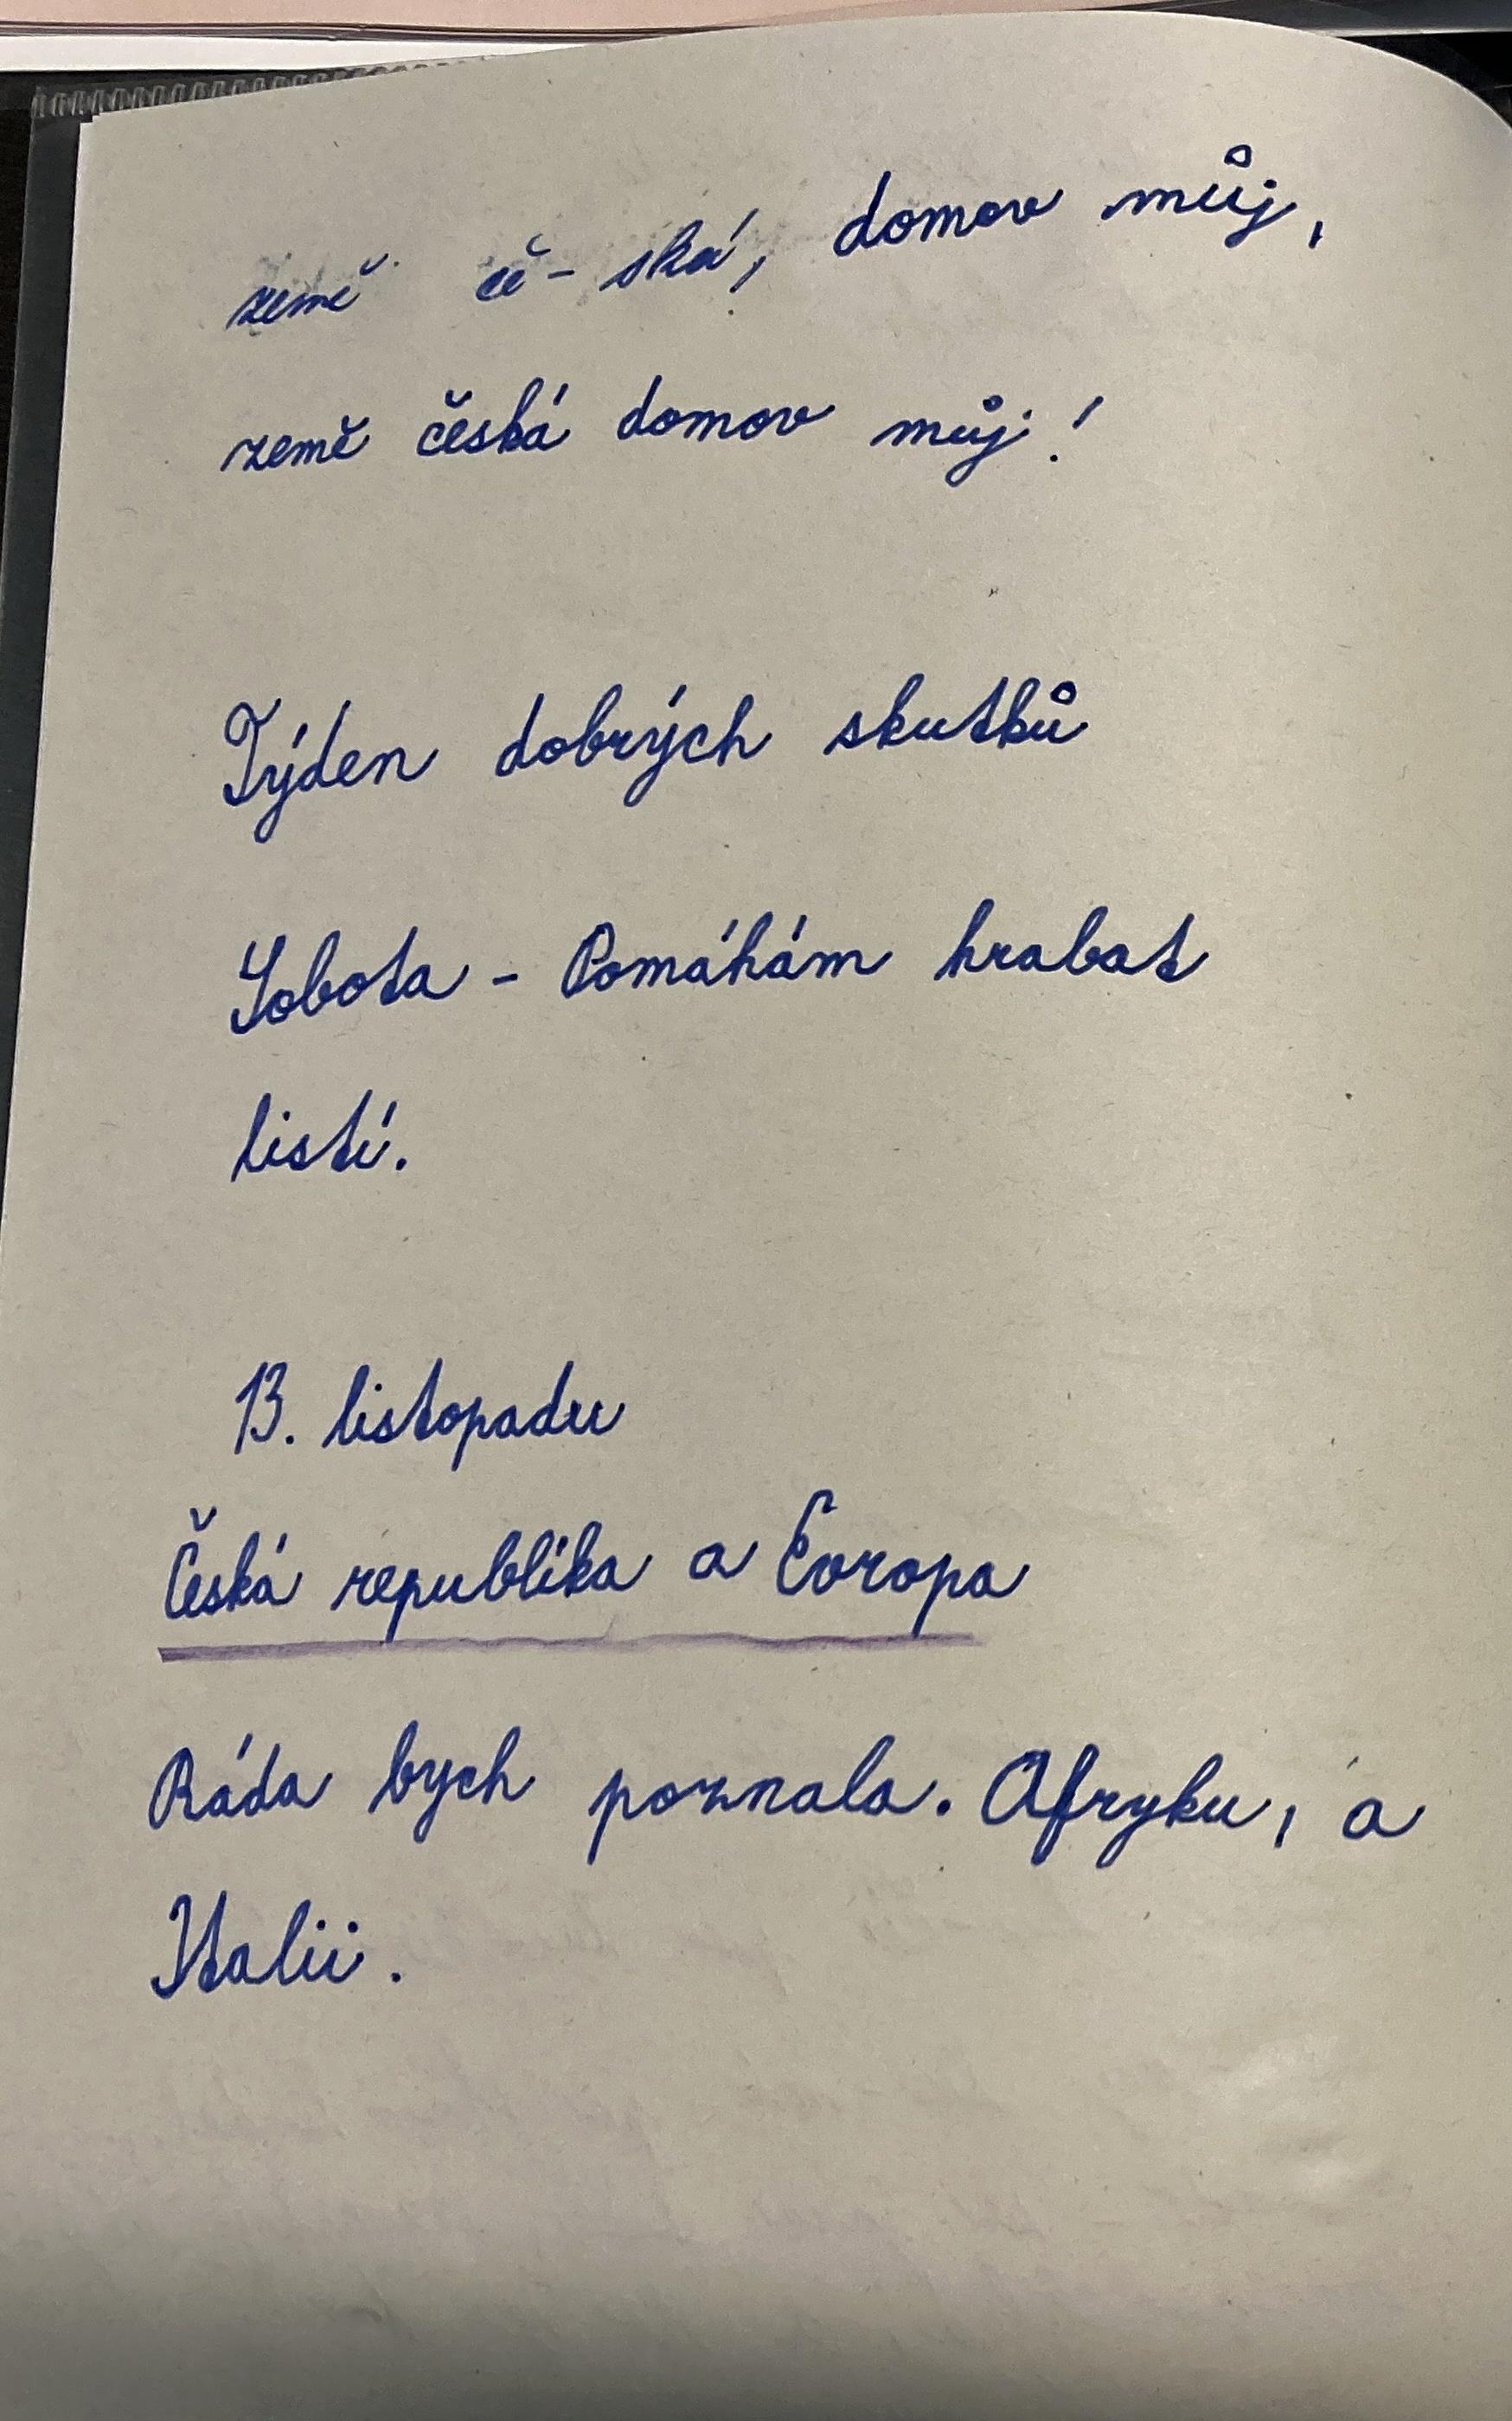 země če-ská, domov můj,
země česká domov můj!
Týden dobrých skutků
Sobota - Pomáhám hrabat
listí.
13. listopadu
Česká republika a Evropa
Ráda bych poznala. Afryku, a
Italii.